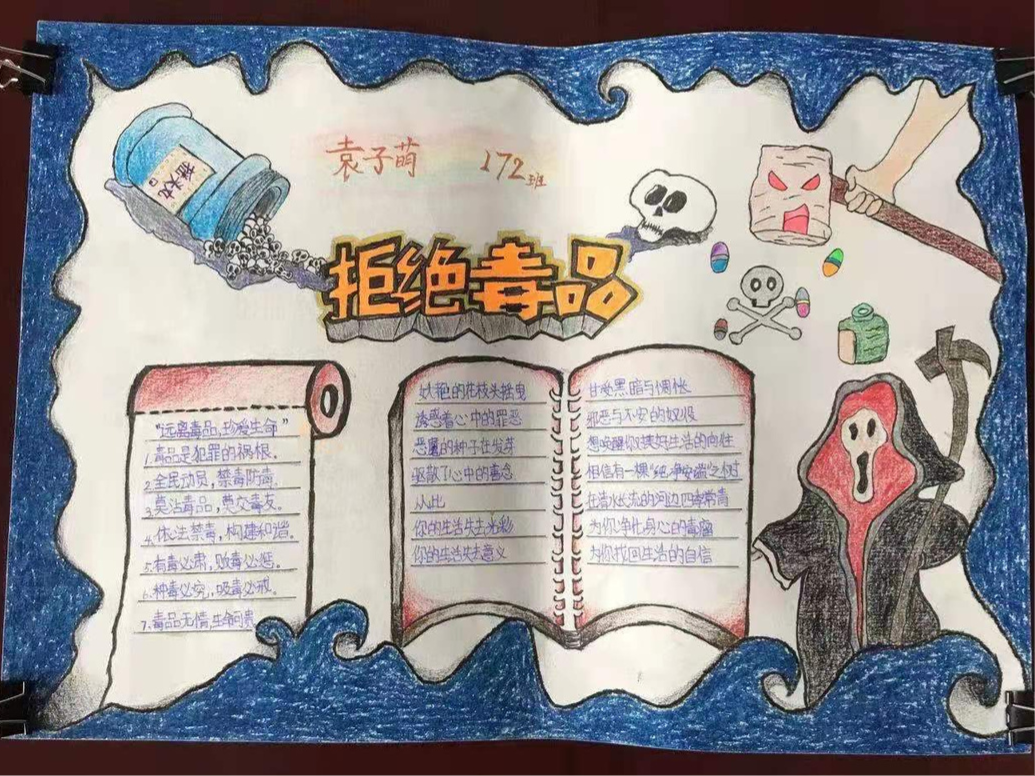 袁子萌 172班
摇头丸
拒绝毒品
"远离毒品,珍爱生命"
1.毒品是犯罪的祸根。
2.全民动员,禁毒防毒.
3.莫沾毒品,莫交毒友。
4.依法禁毒,构建和谐.
5.有毒必肃,贩毒必惩。
6.种毒必究,吸毒必戒.
7.毒品无情,生命可贵
妖艳的花枝头摇曳
诱惑着心中的罪恶
恶魔的种子在发芽
驱散了心中的善念
从此
你的生活失去光彩
你的生活失去意义
甘受黑暗与惆怅
邪恶与不安的奴役
想唤醒你对美好生活的向往
相信有一棵"纯净安谐"之树
在清水长流的河边四季常青
为你净化身心的毒瘤
为你找回生活的自信